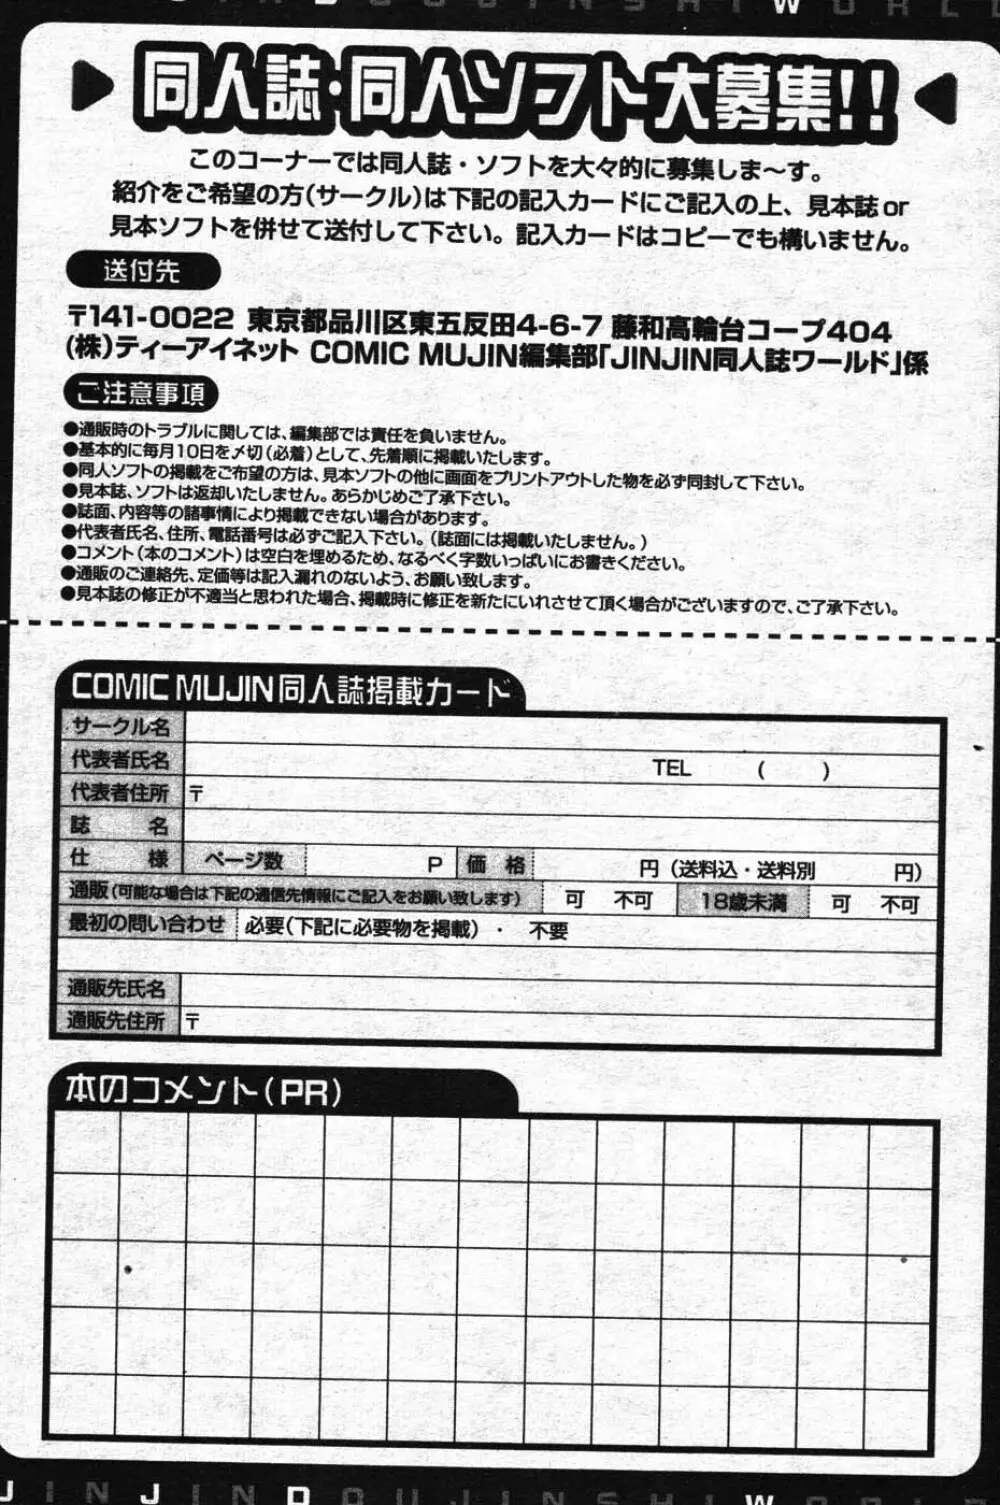 DOUJINSHI WORLD
同人誌・同人ソフト大募集!!
このコーナーでは同人誌・ソフトを大々的に募集しま〜す。
紹介をご希望の方(サークル)は下記の記入カードにご記入の上、見本誌or
見本ソフトを併せて送付して下さい。記入カードはコピーでも構いません。
送付先
〒141-0022 東京都品川区東五反田4-6-7 藤和高輪台コープ404
(株)ティーアイネット COMIC MUJIN編集部「JINJIN同人誌ワールド」係
ご注意事項
●通販時のトラブルに関しては、編集部では責任を負いません。
●基本的に毎月10日を〆切(必着)として、先着順に掲載いたします。
●同人ソフトの掲載をご希望の方は、見本ソフトの他に画面をプリントアウトした物を必ず同封して下さい。
●見本誌、ソフトは返却いたしません。あらかじめご了承下さい。
●誌面、内容等の諸事情により掲載できない場合があります。
●代表者氏名、住所、電話番号は必ずご記入下さい。(誌面には掲載いたしません。)
●コメント(本のコメント)は空白を埋めるため、なるべく字数いっぱいにお書きください。
●通販のご連絡先、定価等は記入漏れのないよう、お願い致します。
●見本誌の修正が不適当と思われた場合、掲載時に修正を新たにいれさせて頂く場合がございますので、ご了承下さい。
COMIC MUJIN同人誌掲載カード
サークル名
代表者氏名 TEL ( )
代表者住所 〒
誌 名
仕 様 ページ数 P 価 格 円(送料込・送料別 円)
通販(可能な場合は下記の通信先情報にご記入をお願い致します) 可 不可 18歳未満 可 不可
最初の問い合わせ 必要(下記に必要物を掲載)・ 不要
通販先氏名
通販先住所 〒
本のコメント(PR)
JINJIN DOUJINSHI WORLD